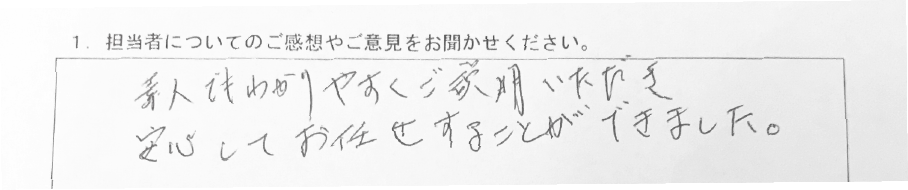 1. 担当者についてのご感想やご意見をお聞かせください。
素人にもわかりやすくご説明いただき
安心してお任せすることができました。